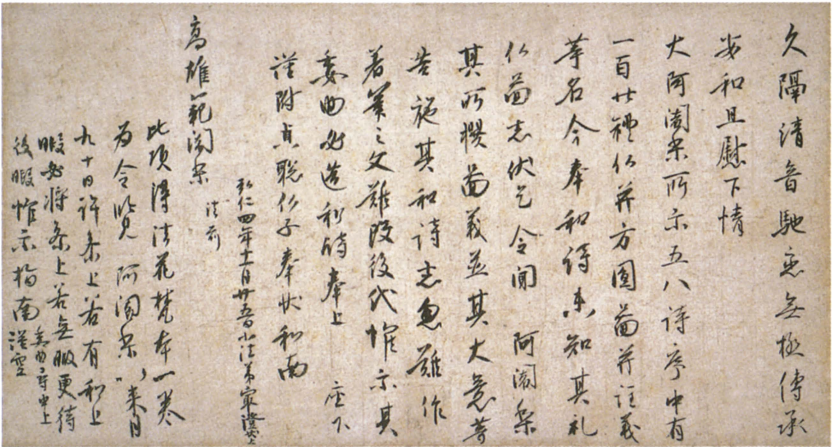 久隔清音馳恋無極傳承
安和且慰下情
大阿闍梨所示五八詩序中有
一百廿禮仏并方圓圖并註義
等名今奉和詩未知其礼
仏圖志伏乞令聞 阿闍梨
其所撰圖義並其大意等
告施其和詩忽難作
著筆之文難改後代惟示其
委曲必造和詩奉上 座下
謹附貞聡仏子奉状和南
弘仁四年十一月廿五日小法弟最澄状上
高雄範闍梨 法前
此頃得法花梵本一巻
為令覧 阿闍梨 来月
九十日許参上若有和上
暇必将参上若無暇更待
後暇惟示指南 委曲之 尋申上
謹空